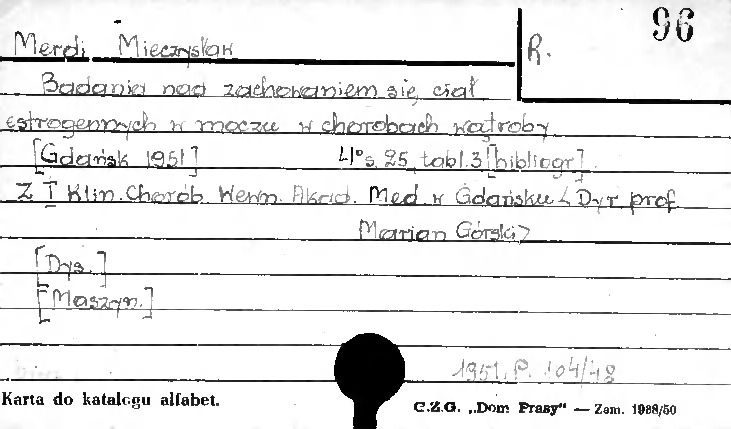 96
Merdi Mieczysław
R.
Badania nad zachowaniem się ciał
estrogennych w moczu w chorobach wątroby
[Gdańsk 1951] 4° s. 25, tabl. 3 [bibliogr.]
Z I Klin. Chorób Wewn. Akad. Med w Gdańsku < Dyr prof
Marian Górski >
[Dys.]
[Maszyn.]
1951. P. 104/48
Karta do katalogu alfabet.
C.Z.G. „Dom Prasy" — Zam. 1988/50